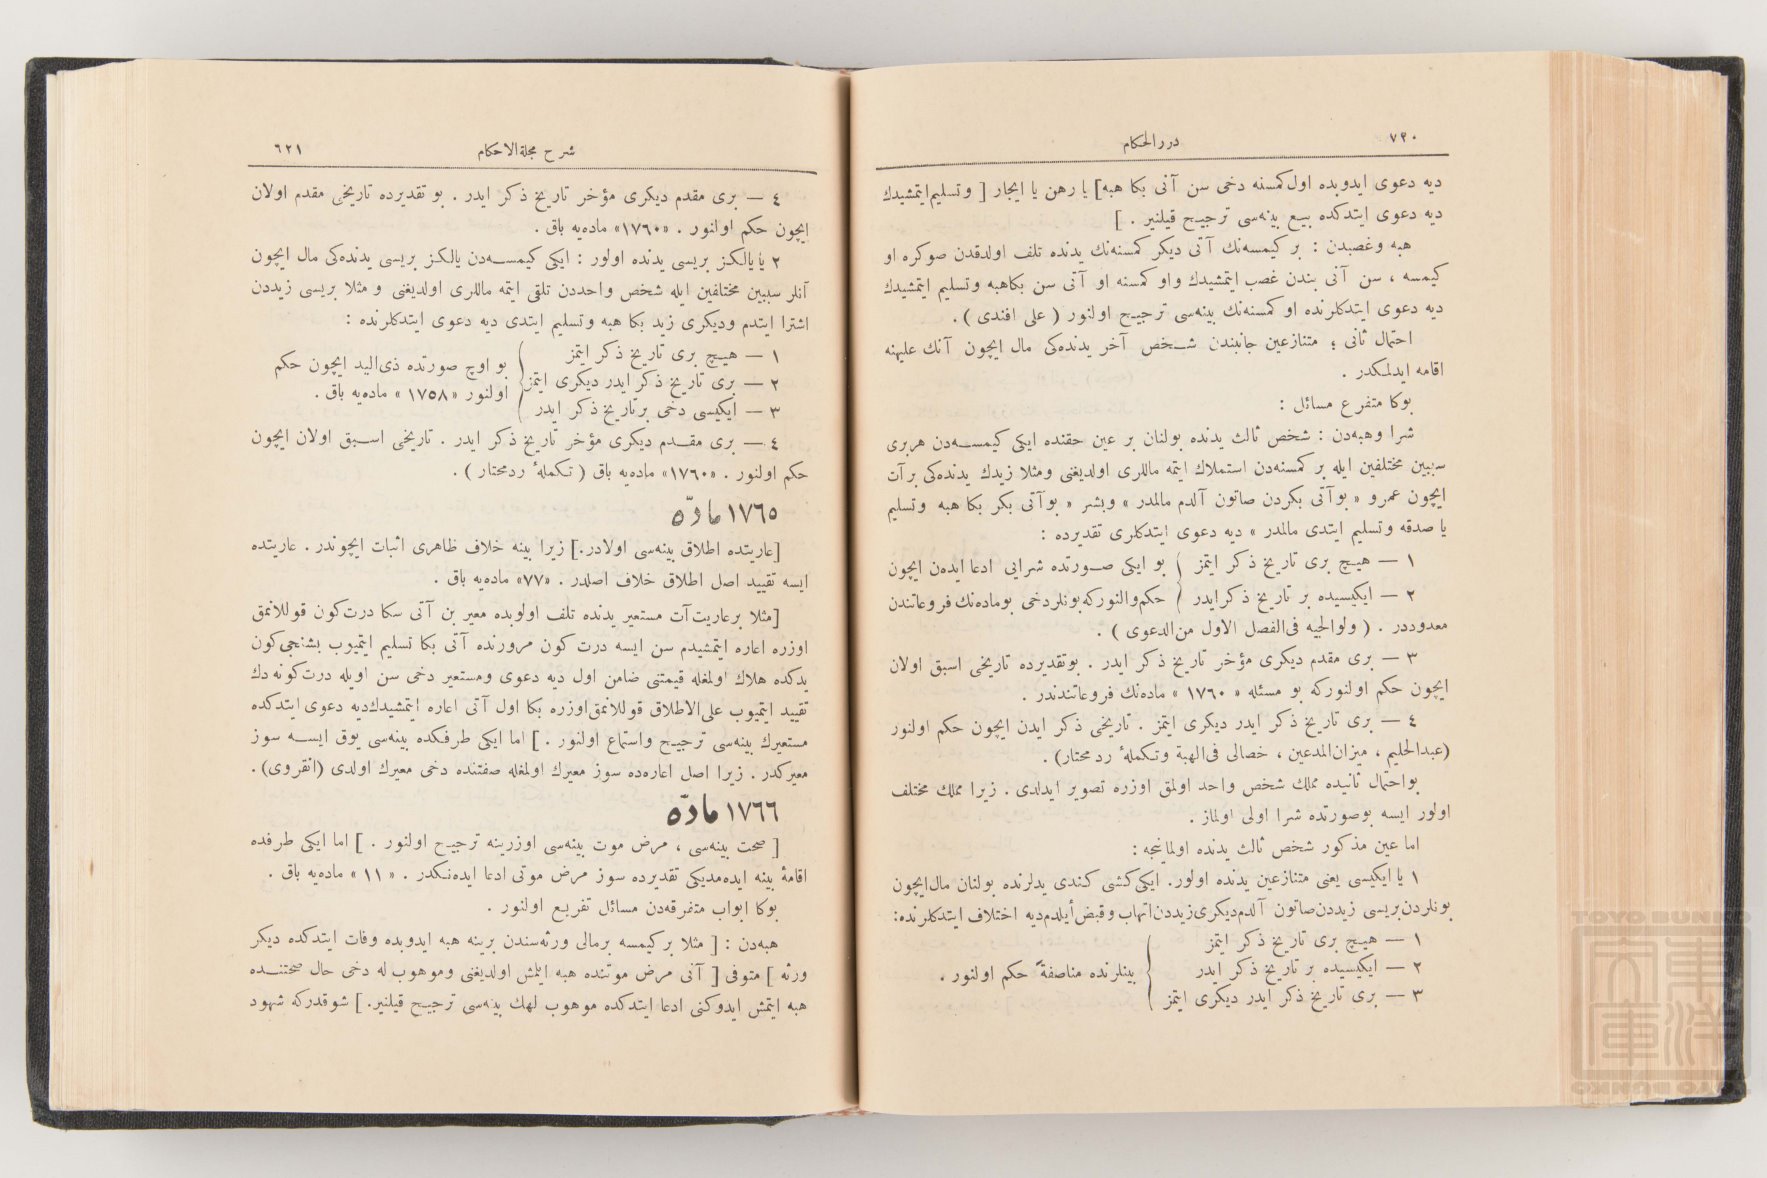 ٧٢٠
درر الحكام
ديه دعوى ايدوبده اول كمسنه دخى سن آنى بكا هبه] يا رهن يا ايجار [ وتسليم ايتمشيدك
ديه دعوى ايتدكده بيع بينه‌سى ترجيح قيلنير . ]
هبه وغصبدن : بر كيمسه‌نك آتى ديكر كمسنه‌نك يدنده تلف اولدقدن صوكره او
كيمسه ، سن آنى بندن غصب ايتمشيدك واو كمسنه او آتى سن بكاهبه وتسليم ايتمشيدك
ديه دعوى ايتدكلرنده او كمسنه‌نك بينه‌سى ترجيح اولنور ( على افندى ) .
احتمال ثانى ؛ متنازعين جانبندن شخص آخر يدنده‌كى مال ايچون آنك عليهنه
اقامه ايدلمكدر .
بوكا متفرع مسائل :
شرا وهبه‌دن : شخص ثالث يدنده بولنان بر عين حقنده ايكى كيمسه‌دن هربرى
سببين مختلفين ايله بر كمسنه‌دن استملاك ايتمه ماللرى اولديغنى ومثلا زيدك يدنده‌كى برآت
ايچون عمرو « بوآتى بكردن صاتون آلدم مالمدر » وبشر « بوآتى بكر بكا هبه وتسليم
يا صدقه وتسليم ايتدى مالمدر » ديه دعوى ايتدكلرى تقديرده :
١ — هيچ برى تاريخ ذكر ايتمز } بو ايكى صورتده شرايى ادعا ايده‌ن ايچون
٢ — ايكيسيده بر تاريخ ذكر ايدر } حكم والنوركه بونلردخى بوماده‌نك فروعاتندن
معدوددر . ( ولوالجيه فى‌الفصل الاول من‌الدعوى ) .
٣ — برى مقدم ديكرى مؤخر تاريخ ذكر ايدر . بوتقديرده تاريخى اسبق اولان
ايچون حكم اولنوركه بو مسئله « ١٧٦٠ » ماده‌نك فروعاتندندر .
٤ — برى تاريخ ذكر ايدر ديكرى ايتمز . تاريخى ذكر ايدن ايچون حكم اولنور
(عبدالحليم ، ميزان‌المدعين ، خصالى فى‌الهبة وتكملهٔ ردمحتار) .
بواحتمال ثانيده مملك شخص واحد اولمق اوزره تصوير ايدلدى . زيرا مملك مختلف
اولور ايسه بوصورتده شرا اولى اولماز .
اما عين مذكور شخص ثالث يدنده اولماينجه :
١ يا ايكيسى يعنى متنازعين يدنده اولور. ايكى كشى كندى يدلرنده بولنان مال ايچون
بونلردن بريسى زيددن صاتون آلدم ديكرى زيددن اتهاب وقبض أيلدم ديه اختلاف ايتدكلرنده:
١ — هيچ برى تاريخ ذكر ايتمز
٢ — ايكيسيده بر تاريخ ذكر ايدر } بينلرنده مناصفةً حكم اولنور .
٣ — برى تاريخ ذكر ايدر ديكرى ايتمز
شرح مجلة‌الاحكام
٦٢١
٤ — برى مقدم ديكرى مؤخر تاريخ ذكر ايدر . بو تقديرده تاريخى مقدم اولان
ايچون حكم اولنور . «١٧٦٠» ماده‌يه باق .
٢ يا يالكز بريسى يدنده اولور : ايكى كيمسه‌دن يالكز بريسى يدنده‌كى مال ايچون
آنلر سببين مختلفين ايله شخص واحددن تلقى ايتمه ماللرى اولديغنى و مثلا بريسى زيددن
اشترا ايتدم وديكرى زيد بكا هبه وتسليم ايتدى ديه دعوى ايتدكلرنده :
١ — هيچ برى تاريخ ذكر ايتمز
٢ — برى تاريخ ذكر ايدر ديكرى ايتمز } بو اوچ صورتده ذى‌اليد ايچون حكم
٣ — ايكيسى دخى برتاريخ ذكر ايدر } اولنور «١٧٥٨» ماده‌يه باق .
٤ — برى مقدم ديكرى مؤخر تاريخ ذكر ايدر . تاريخى اسبق اولان ايچون
حكم اولنور . «١٧٦٠» ماده‌يه باق ( تكملهٔ ردمحتار ) .
١٧٦٥ مادّه
[عاريتده اطلاق بينه‌سى اولادر.] زيرا بينه خلاف ظاهرى اثبات ايچوندر . عاريتده
ايسه تقييد اصل اطلاق خلاف اصلدر . «٧٧» ماده‌يه باق .
[مثلا برعاريت آت مستعير يدنده تلف اولوبده معير بن آتى سكا درت كون قوللانمق
اوزره اعاره ايتمشيدم سن ايسه درت كون مرورنده آتى بكا تسليم ايتميوب بشنجى كون
يدكده هلاك اولمغله قيمتنى ضامن اول ديه دعوى ومستعير دخى سن اويله درت كونه دك
تقييد ايتميوب على‌الاطلاق قوللانمق اوزره بكا اول آتى اعاره ايتمشيدك ديه دعوى ايتدكده
مستعيرك بينه‌سى ترجيح واستماع اولنور . ] اما ايكى طرفكده بينه‌سى يوق ايسه سوز
معيركدر . زيرا اصل اعاره‌ده سوز معيرك اولمغله صفتنده دخى معيرك اولدى (انقروى) .
١٧٦٦ مادّه
[ صحت بينه‌سى ، مرض موت بينه‌سى اوزرينه ترجيح اولنور . ] اما ايكى طرفده
اقامهٔ بينه ايده‌مديكى تقديرده سوز مرض موتى ادعا ايده‌نكدر . « ١١ » ماده‌يه باق .
بوكا ابواب متفرقه‌دن مسائل تفريع اولنور .
هبه‌دن : [ مثلا بر كيمسه برمالى ورثه‌سندن برينه هبه ايدوبده وفات ايتدكده ديكر
ورثه ] متوفى [ آنى مرض موتنده هبه ايتمش اولديغنى وموهوب له دخى حال صحتنده
هبه ايتمش ايدوكنى ادعا ايتدكده موهوب لهك بينه‌سى ترجيح قيلنير. ] شوقدركه شهود
TOYO BUNKO
東洋文庫
TOYO BUNKO